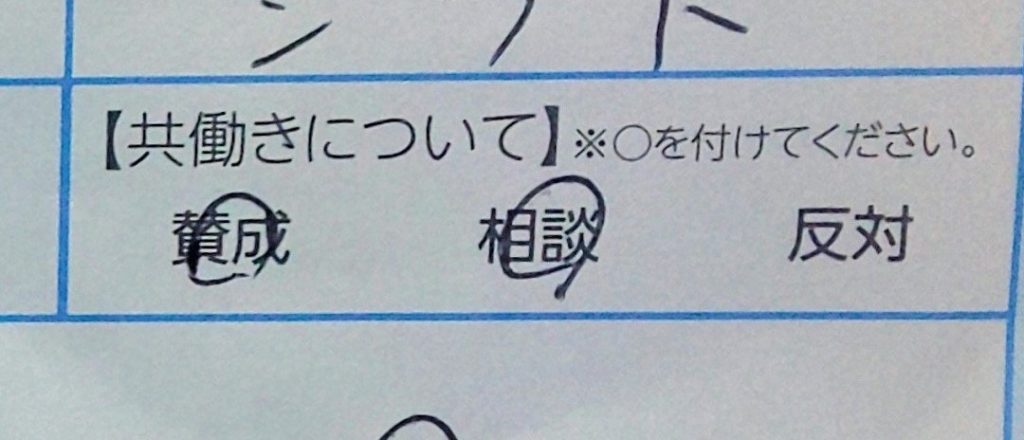 【共働きについて】※○を付けてください。
賛成 相談 反対